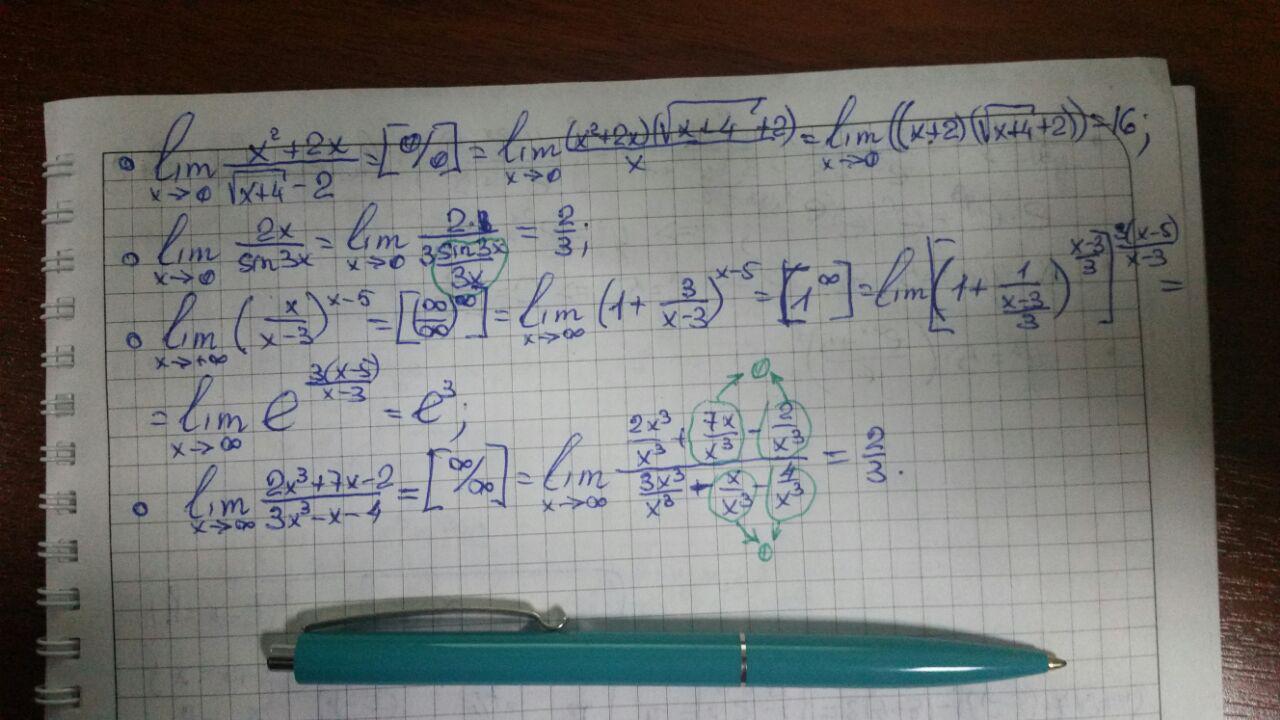 • lim x→0 (x²+2x)/(√(x+4) -2) = [0/0] = lim x→0 ((x²+2x)(√(x+4) +2))/x = lim x→0 ((x+2)(√(x+4)+2)) = 16;
• lim x→0 2x/sin3x = lim x→0 (2·1)/(3 sin3x/3x) = 2/3;
• lim x→+∞ (x/(x-3))^(x-5) = [(∞/∞)^∞] = lim x→∞ (1+ 3/(x-3))^(x-5) = [1^∞] = lim [(1+ 1/((x-3)/3))^((x-3)/3)]^(3(x-5)/(x-3)) =
= lim x→∞ e^(3(x-5)/(x-3)) = e³;
• lim x→∞ (2x³+7x-2)/(3x³-x-4) = [∞/∞] = lim x→∞ (2x³/x³ + 7x/x³ - 2/x³)/(3x³/x³ - x/x³ - 4/x³) = 2/3.
0
0